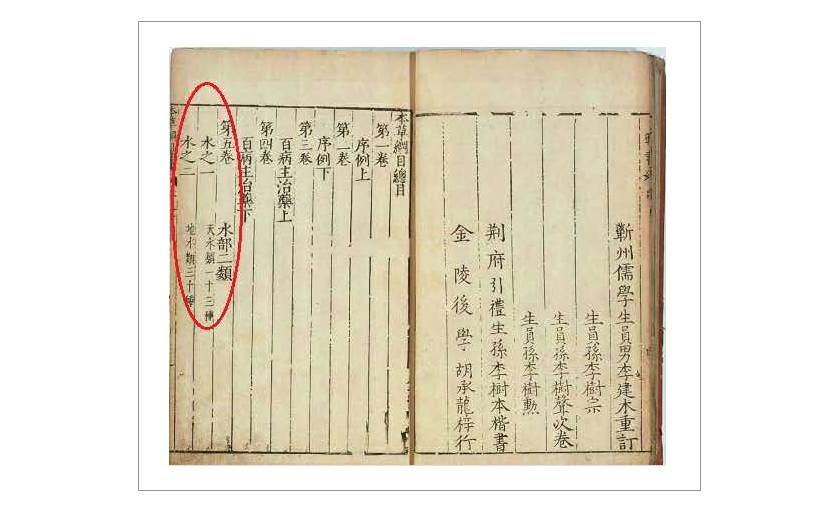 蘄州儒學生員男李建木重訂
生員孫李樹宗
生員孫李樹聲次卷
生員孫李樹勲
荆府引禮生孫李樹本楷書
金陵後學胡承龍梓行
本草綱目總目
第一卷
序例上
第一卷
序例下
第三卷
百病主治藥上
第四卷
百病主治藥下
第五卷 水部二類
水之一 天水類一十三種
水之二 地水類三十種